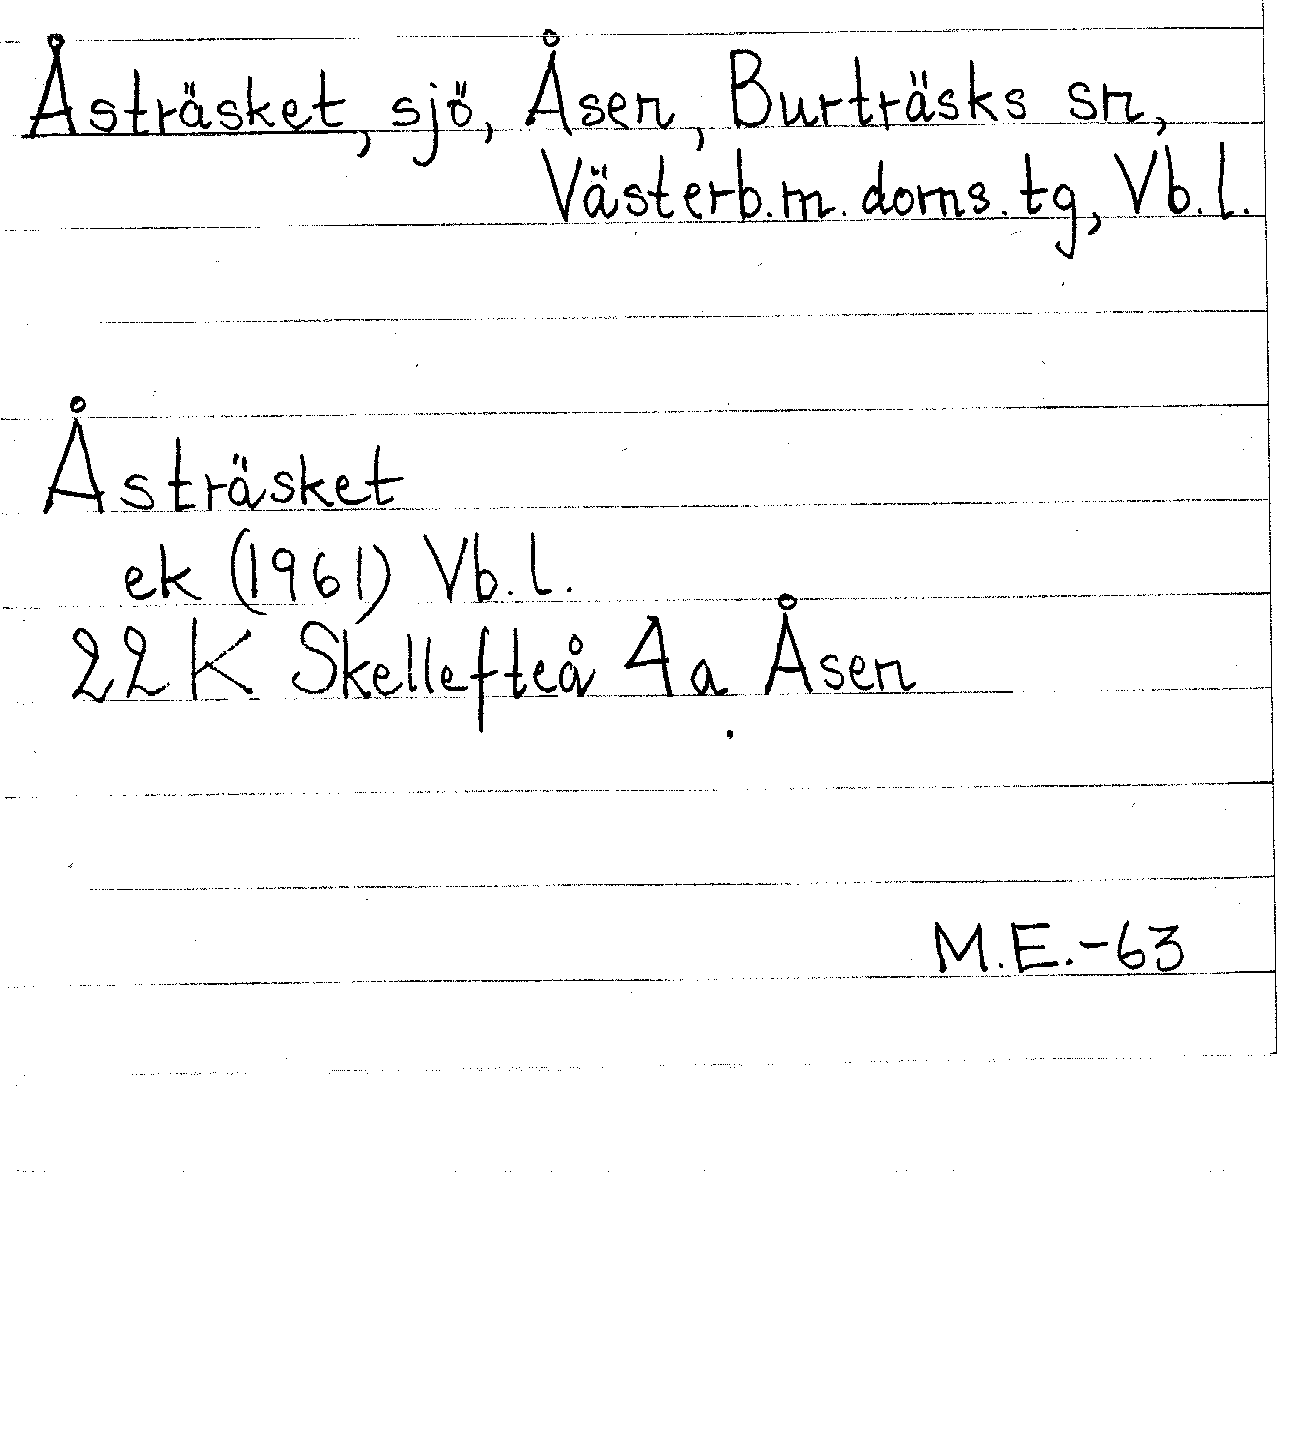 Åsträsket, sjö, Åsen, Burträsks sn,
Västerb.m. doms. tg, Vb. l.
Åsträsket
ek (1961) Vb. l.
22 K Skellefteå 4a Åsen
M.E.-63